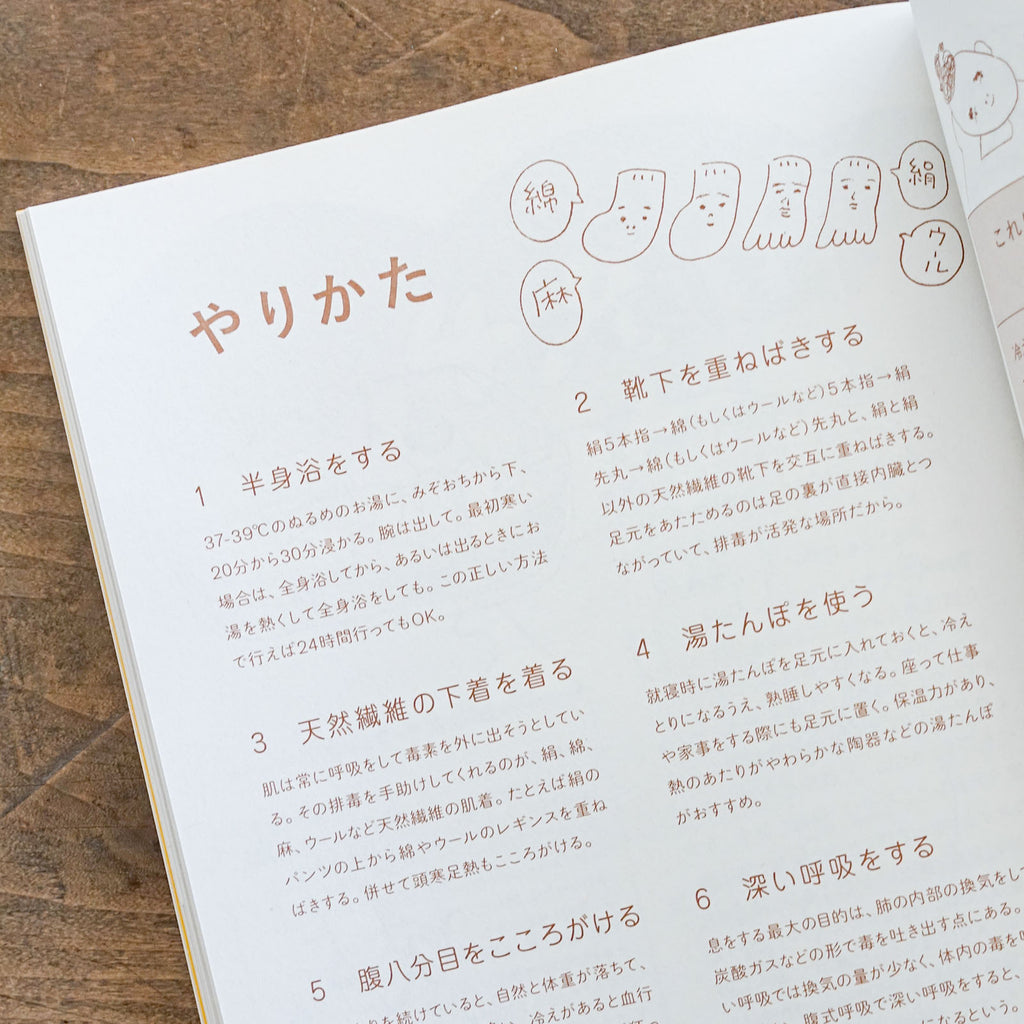 やりかた
綿
麻
絹
ウール
1 半身浴をする
37-39℃のぬるめのお湯に、みぞおちから下、
20分から30分浸かる。腕は出して。最初寒い
場合は、全身浴してから、あるいは出るときにお
湯を熱くして全身浴をしても。この正しい方法
で行えば24時間行ってもOK。
2 靴下を重ねばきする
絹5本指→綿（もしくはウールなど）5本指→絹
先丸→綿（もしくはウールなど）先丸と、絹と絹
以外の天然繊維の靴下を交互に重ねばきする。
足元をあたためるのは足の裏が直接内臓とつ
ながっていて、排毒が活発な場所だから。
3 天然繊維の下着を着る
肌は常に呼吸をして毒素を外に出そうとしてい
る。その排毒を手助けしてくれるのが、絹、綿、
麻、ウールなど天然繊維の肌着。たとえば絹の
パンツの上から綿やウールのレギンスを重ね
ばきする。併せて頭寒足熱もこころがける。
4 湯たんぽを使う
就寝時に湯たんぽを足元に入れておくと、冷え
とりになるうえ、熟睡しやすくなる。座って仕事
や家事をする際にも足元に置く。保温力があり、
熱のあたりがやわらかな陶器などの湯たんぽ
がおすすめ。
5 腹八分目をこころがける
を続けていると、自然と体重が落ちて、
冷えがあると血行
6 深い呼吸をする
息をする最大の目的は、肺の内部の換気をし
炭酸ガスなどの形で毒を吐き出す点にある。
い呼吸では換気の量が少なく、体内の毒を
腹式呼吸で深い呼吸をすると、
になるという。
これ